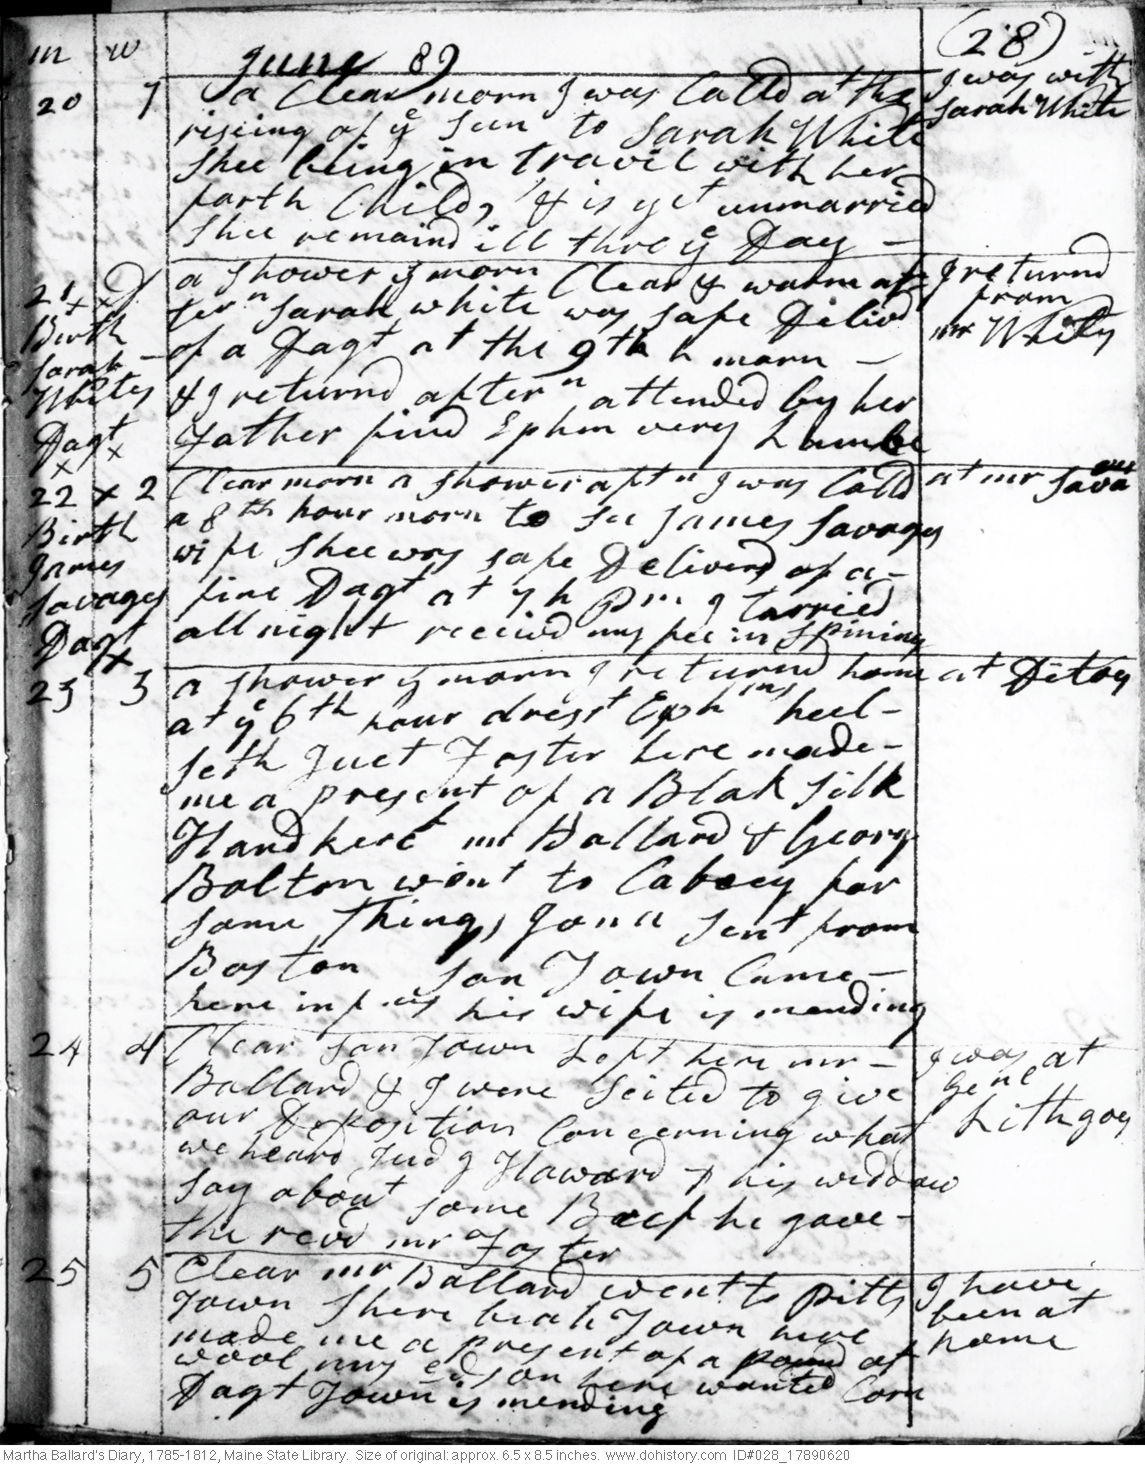 m w
June 89
(28)
20 7 a Clear morn I was Calld at the
riseing of ye Sun to Sarah White
Shee being in travil with her
forth Child, & is yet unmarried
Shee remaind ill thro ye Day —
I was with
Sarah White
21 D a shower ys morn Clear & warm af
tern Sarah white was safe Delivd
of a Dagt at the 9th h morn —
& I returnd aftern attended by her
Father find Ephm very Lamle
x x
Birth
Sarah –
Whites
Dagt
x x
I returnd
from
mr Whites
22 x 2 Clear morn a shower aptn I was Calld
a 8th hour morn to see James Savages
wife Shee was safe Deliverd of a –
fine Dagt at 7 h Pm I tarried
all night receivd my fee in Spining
Birth
James
Savages
Dagt
x
at mr Sava
ges
23 3 a shower ys morn I returnd home
at ye 6th hour dresst Ephms heel –
Seth Foster here made –
me a present of a Blak Silk
Handkerct mr Ballard & Georg
Bolton went to Cabesy for
some things Jona sent from
Boston Son Town Came –
here in his wife is mending
at Ditoes
24 4 Clear Son Town Left here mr –
Ballard & I were Scited to give
our Deposition Concerning what
we heard Judg Howard & his widdaw
Say about some Beef he gave –
the revd mr Foster
I was at
Genel
Lithgoes
25 5 Clear mr Ballard went to Pitts
Town Sherebiah Town here
made me a present of a pound of
wool son here wanted Corn
Dagt Town is mending
I have
been at
home
Martha Ballard's Diary, 1785-1812, Maine State Library. Size of original: approx. 6.5 x 8.5 inches. www.dohistory.com ID#028_17890620